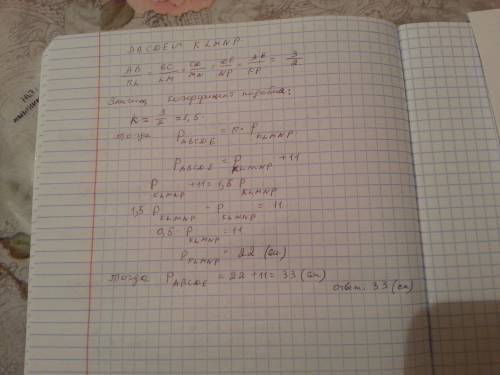 ABCDE и KLMNP
AB/KL = BC/LM = CD/MN = DE/NP = AE/KP = 3/2
Значит коэффициент подобия:
K = 3/2 = 1,5.
Тогда P_ABCDE = K · P_KLMNP
P_ABCDE = P_KLMNP + 11
P_KLMNP + 11 = 1,5 P_KLMNP
1,5 P_KLMNP - P_KLMNP = 11
0,5 P_KLMNP = 11
P_KLMNP = 22 (см)
Тогда P_ABCDE = 22 + 11 = 33 (см)
ответ. 33 (см)